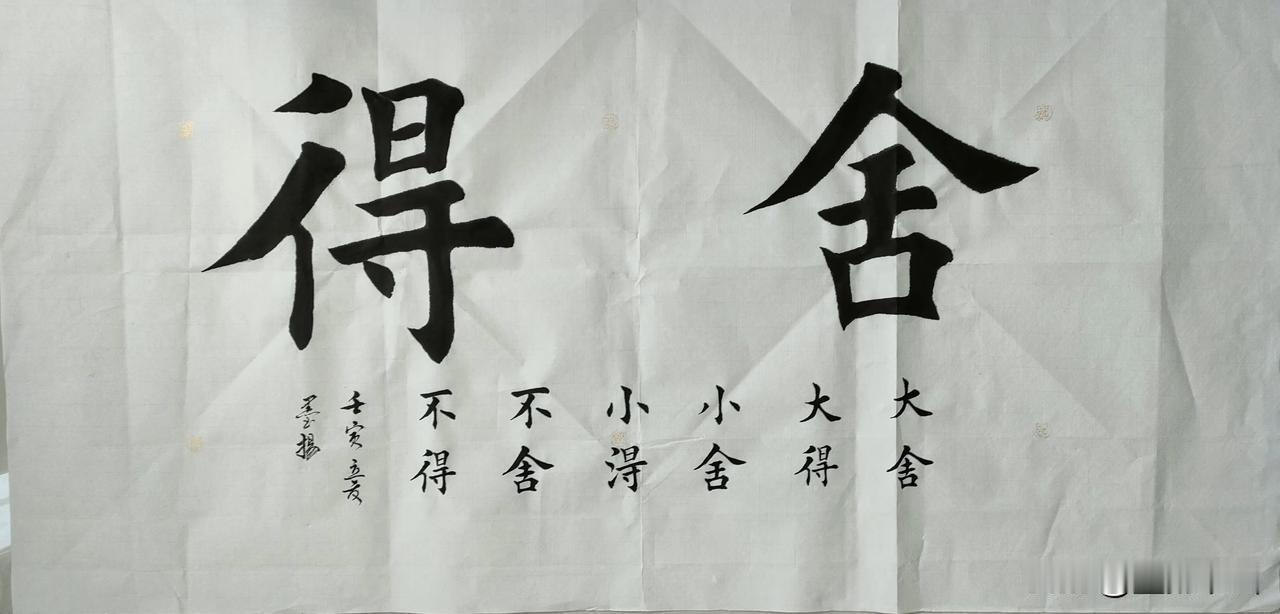 舍得
大舍
大得
小舍
小得
不舍
不得
壬寅立夏
墨揚